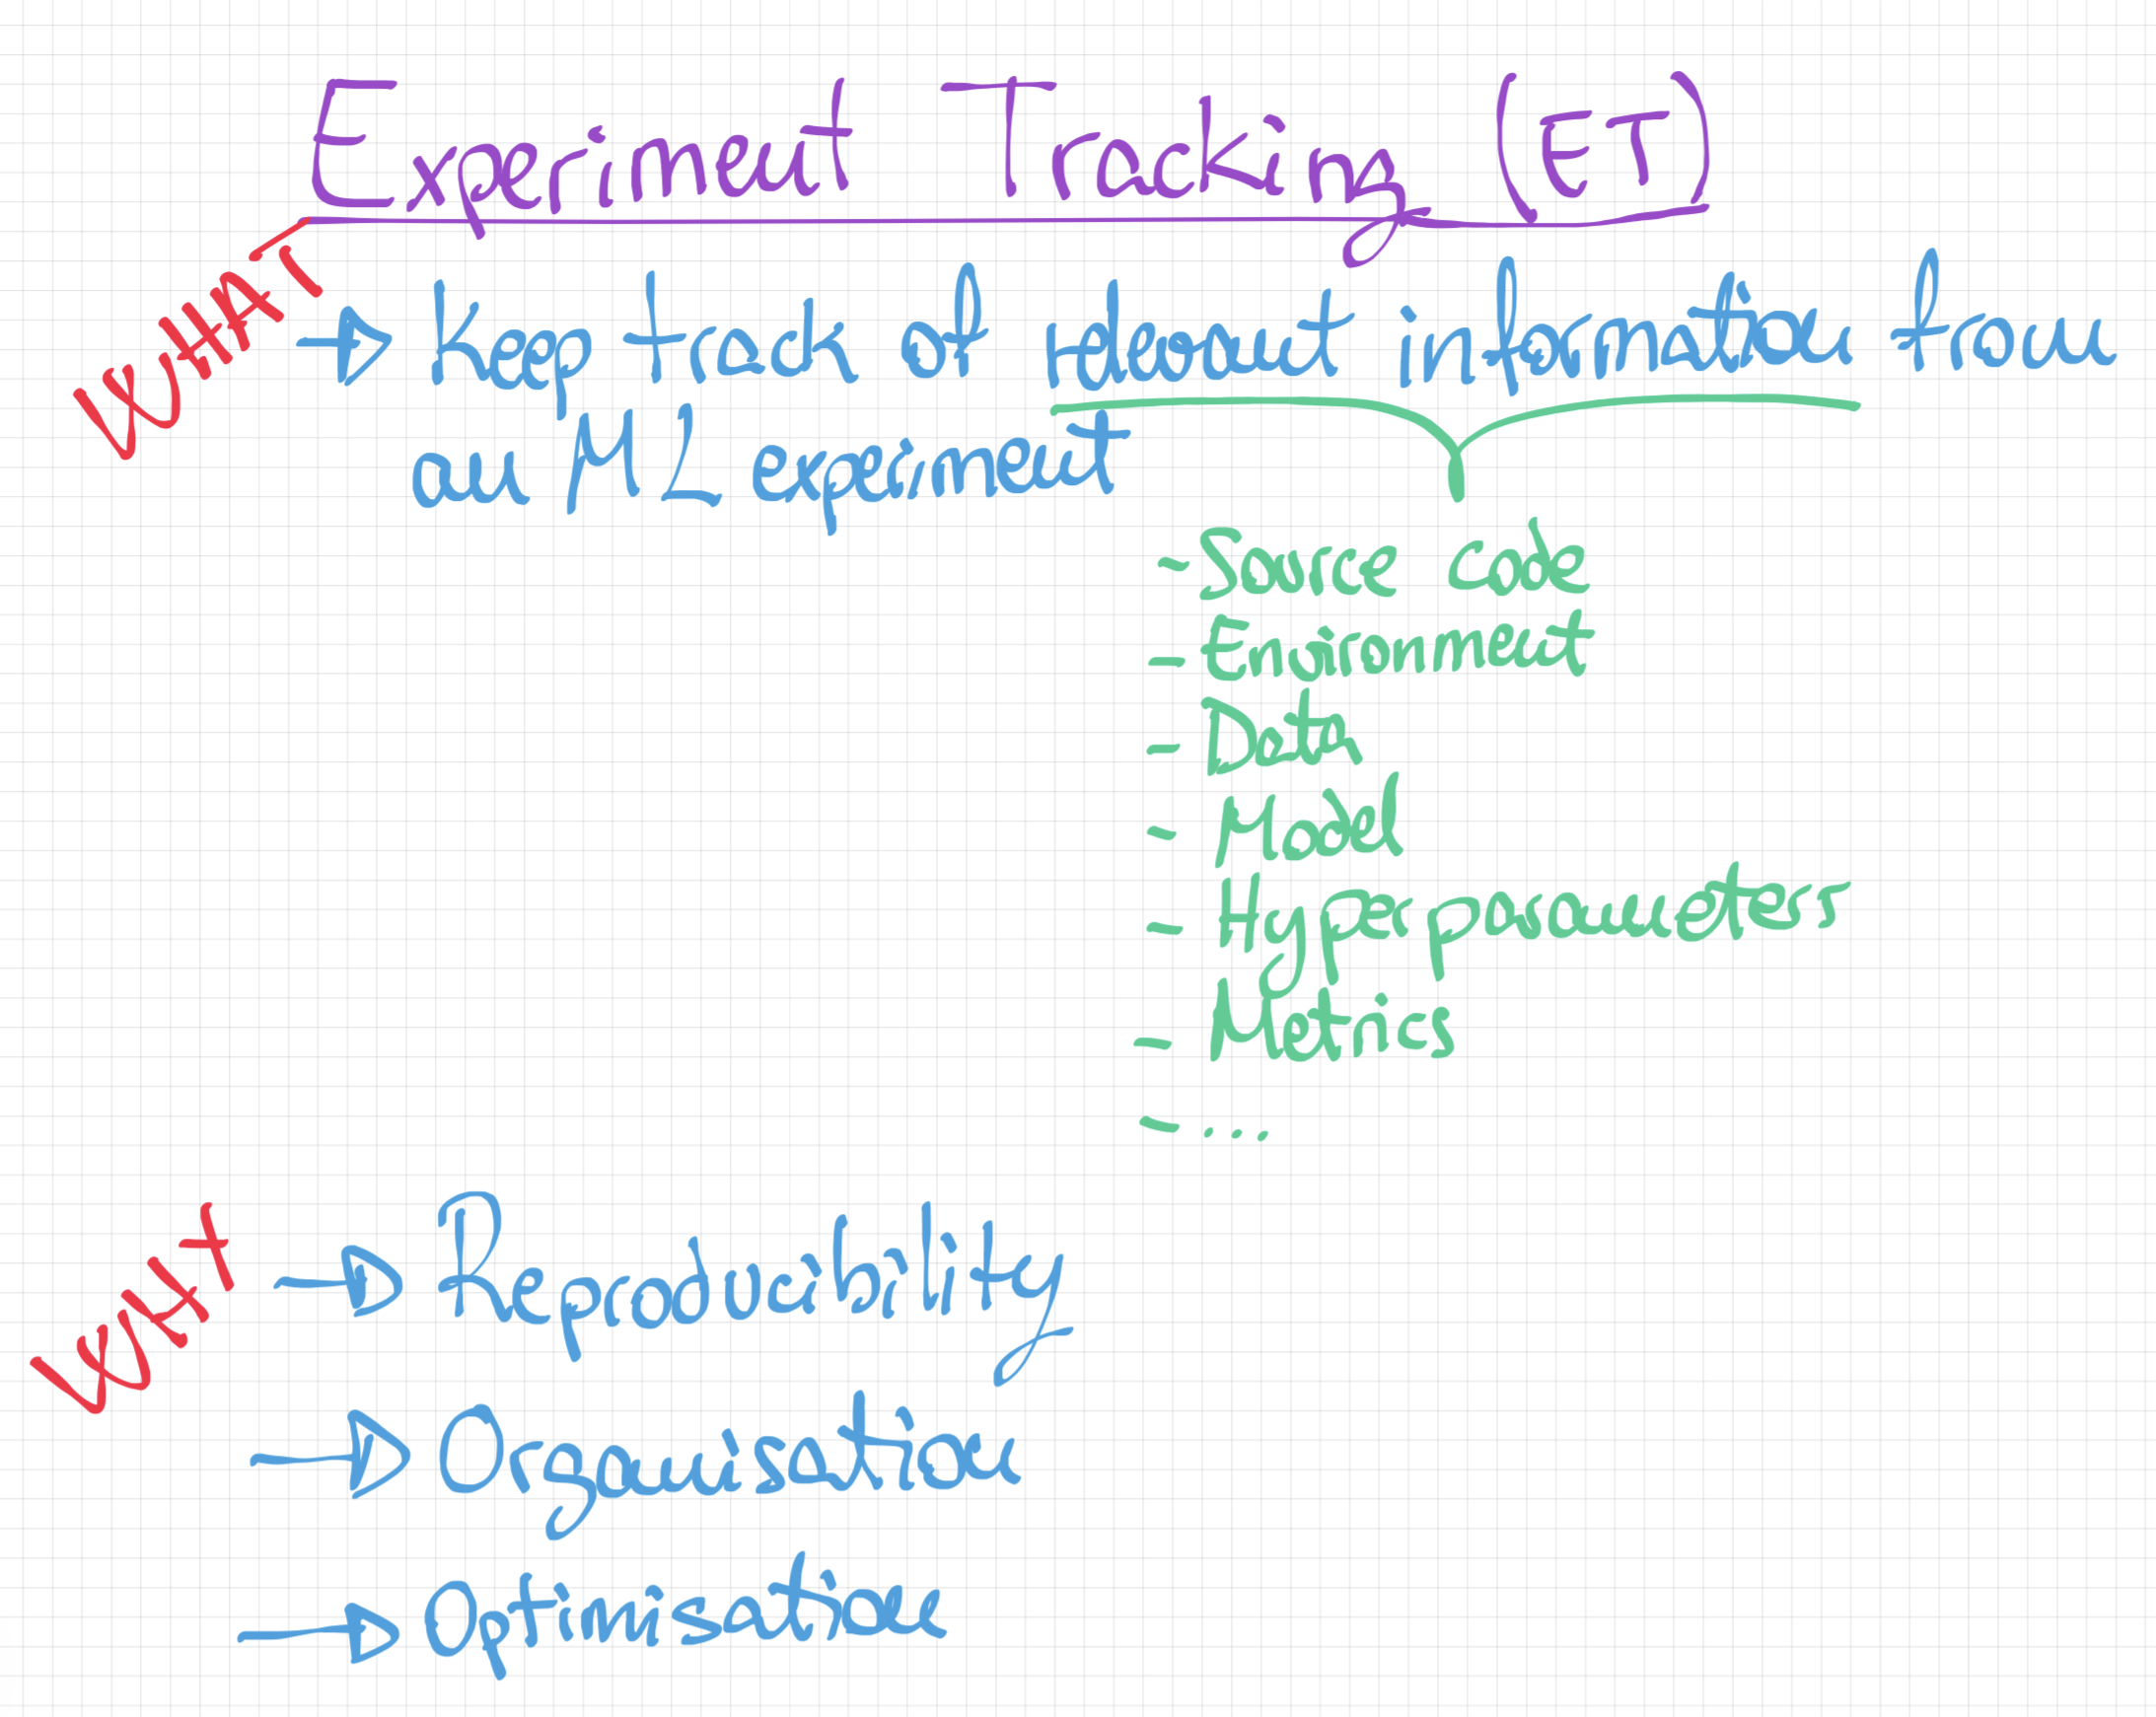 Experiment Tracking (ET)
WHAT
→ Keep track of relevant information from
an ML experiment
- Source code
- Environment
- Data
- Model
- Hyperparameters
- Metrics
- ...
WHY
→ Reproduciability
→ Organisation
→ Optimisation